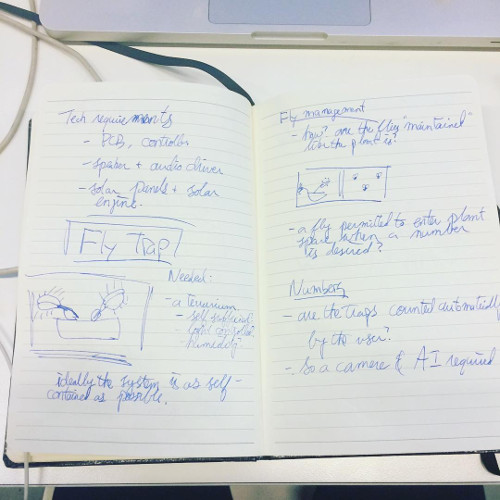 Tech requirements
- PCB, controller
- speaker + audio driver
- solar panels + solar
engine.
Fly Trap
Needed:
- a terrarium
- self
- humidity
ideally the system is as self-
contained as possible.
Fly management
- how? are the flies "maintained"
like the plant is?
- a fly permitted to enter plant
space when a number
is desired?
Numbers
- are the traps counted automatically
by the user?
- So a camera & AI required